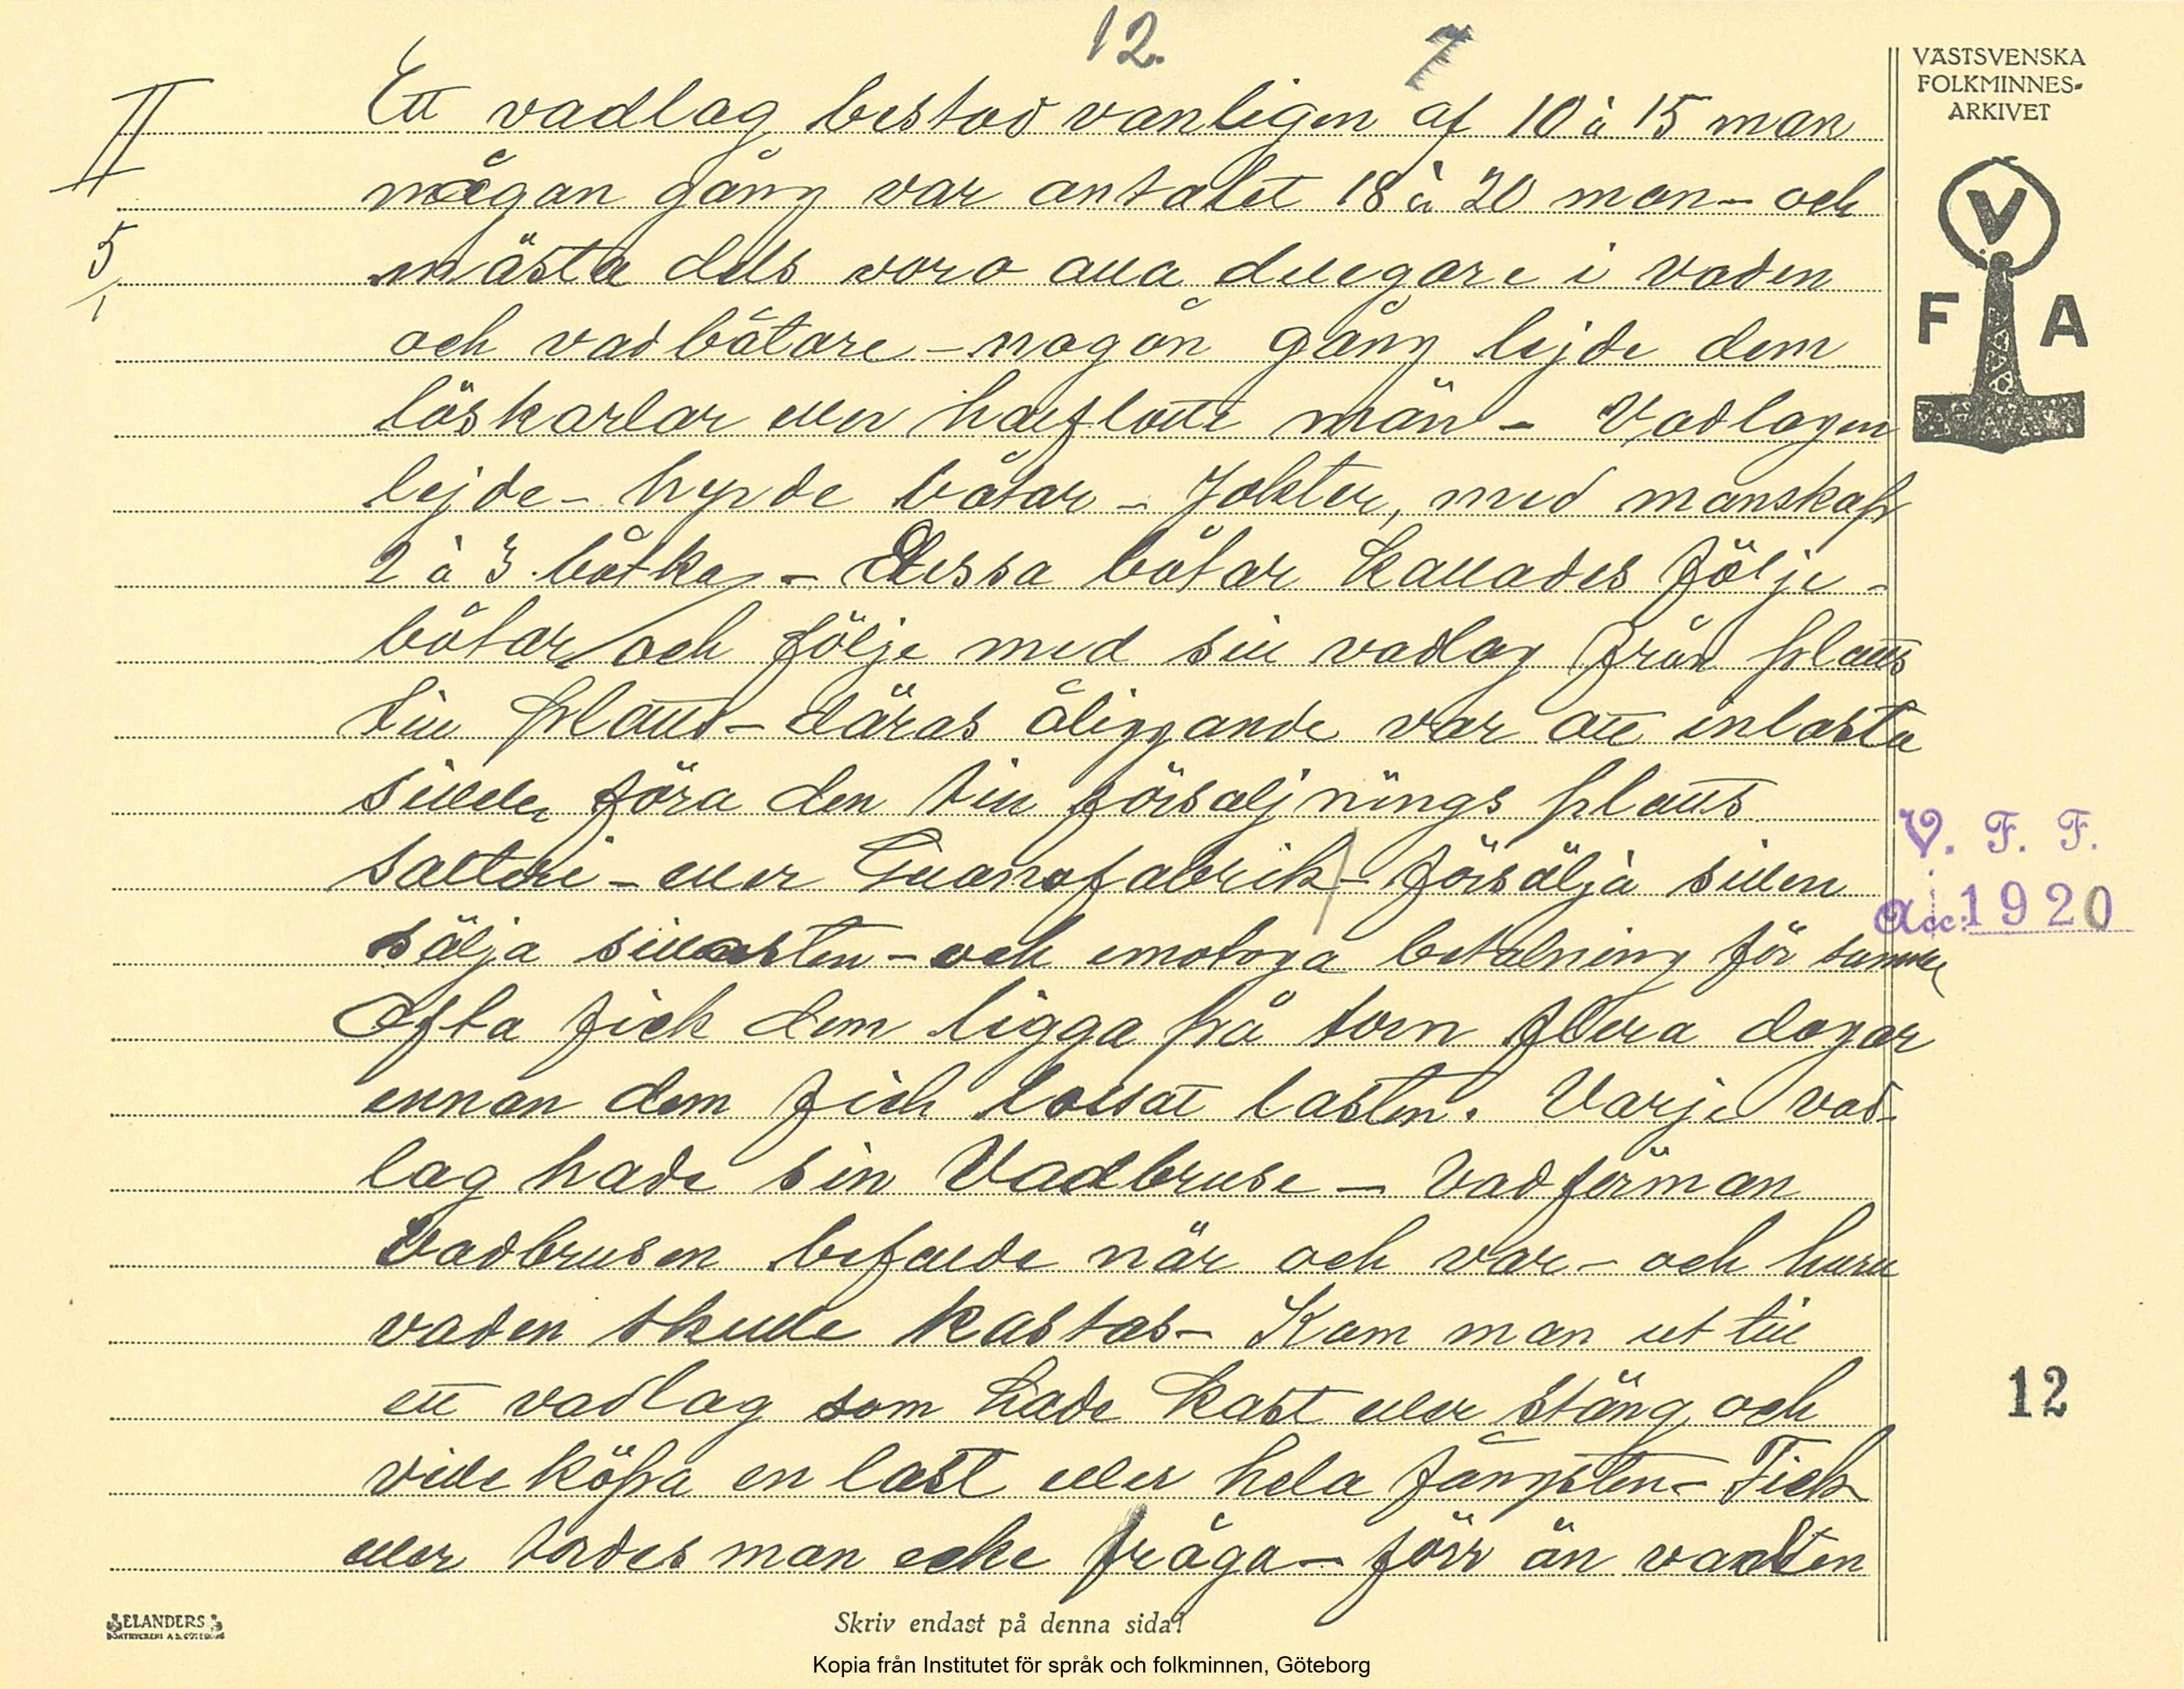 12. 7
VÄSTSVENSKA
FOLKMINNES-
ARKIVET
V
F A
II
5
1
Ett vadlag bestod vanligen af 10 à 15 man
någan gång var antalet 18 à 20 man - och
mästa dels voro alla delegare i vaden
och vadbåtare - någon gång lejde dem
löskarlar eller halflotts män - Vadlagen
lejde - hyrde båtar - Jakter, med manskap
2 à 3 båtkar - Dessa båtar kallades följe-
båtar och följe med sin vadlag från plats
till plats - däras åliggande var att inlasta
sillen föra den till försäljnings plats
Salteri - eller Guanofabrik - försälja sillen
sälja sillasten - och emotoga betalning för samma
Ofta fick dem ligga på torn flera dagar
ennan dem fick lossat lasten. Varje vad-
lag hade sin Vadbruse - Vadförman
Vadbrusen befallde när och var - och huru
vaden skulle kastas - Kom man ut till
ett vadlag som hade kast eller stäng och
ville köpa en last eller hela fångsten - Fick
eller tordes man ecke fråga - förr än vadten
V. F. F.
Acc: 1920
12
ELANDERS
BOKTRYCKERI A.B. GÖTEBORG
Skriv endast på denna sida!
Kopia från Institutet för språk och folkminnen, Göteborg